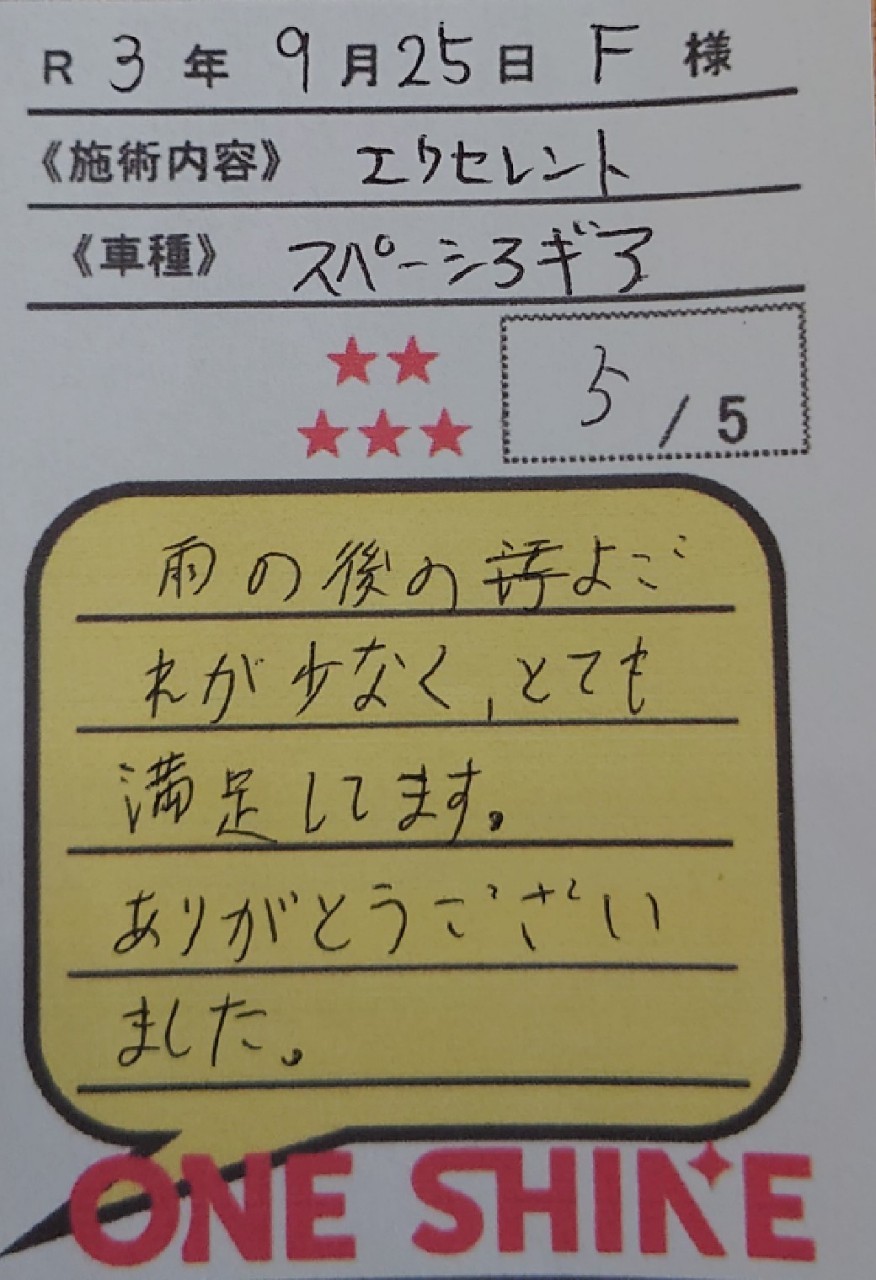 R 3 年 9 月 25 日 F 様
《施術内容》 エクセレント
《車種》 スペーシアギア
★★
★★★
5 / 5
雨の後のよご
れが少なく、とても
満足してます。
ありがとうござい
ました。
ONE SHINE